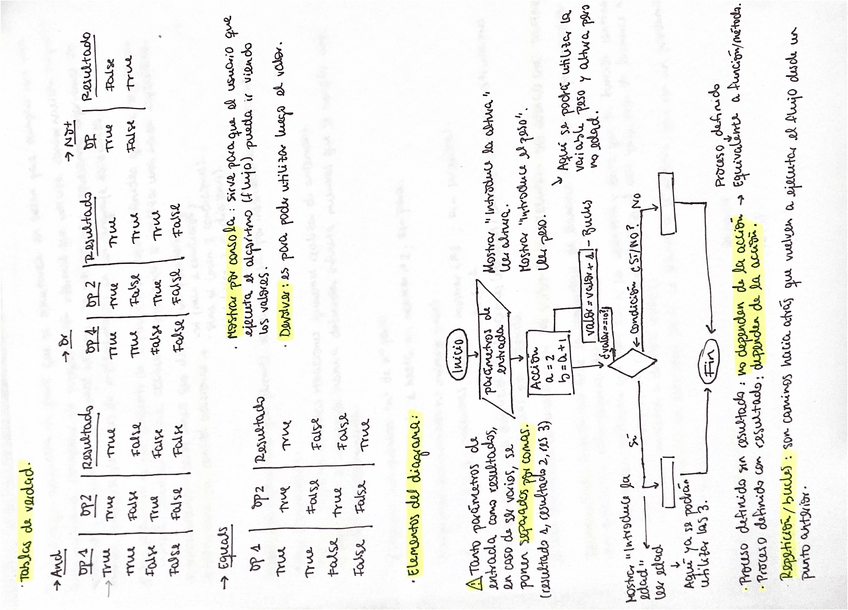 · Tablas de verdad.
→ And
OP 1 OP2 Resultado
→ True True True
True False False
False True False
False False False
→ Or
OP 1 OP 2 Resultado
True True True
True False True
False True True
False False False
→ Not
OP Resultado
True False
False True
→ Equals
OP 1 OP2 Resultado
True True True
True False False
False True False
False False True
· Mostrar por consola: sirve para que el usuario que
ejecuta el algoritmo (flujo) pueda ir viendo
los valores.
· Devolver: es para poder utilizar luego el valor.
· Elementos del diagrama:
⚠ Tanto parámetros de
entrada, como resultados,
en caso de ser varios, se
ponen separados por comas.
(resultado 1, resultado 2, res 3)
Inicio
parámetros de
entrada
Mostrar "Introduce la altura"
Leer altura.
Mostrar "Introduce el peso".
Leer peso.
↘ Aquí se podrá utilizar la
variable peso y altura pero
no edad.
Acción
a = 2
b = a + 1
valor = valor + 1
- Bucles
← condición ¿SÍ/NO?
SÍ
NO
Mostrar "Introduce la
edad"
leer edad
Aquí ya se podrán
utilizar las 3.
Fin
Proceso definido
· Proceso definido sin resultado: no dependen de la acción → Equivalente a función/método.
· Proceso definido con resultado: dependen de la acción.
· Repetición/bucles: son caminos hacia atrás que vuelven a ejecutar el flujo desde un
punto anterior.